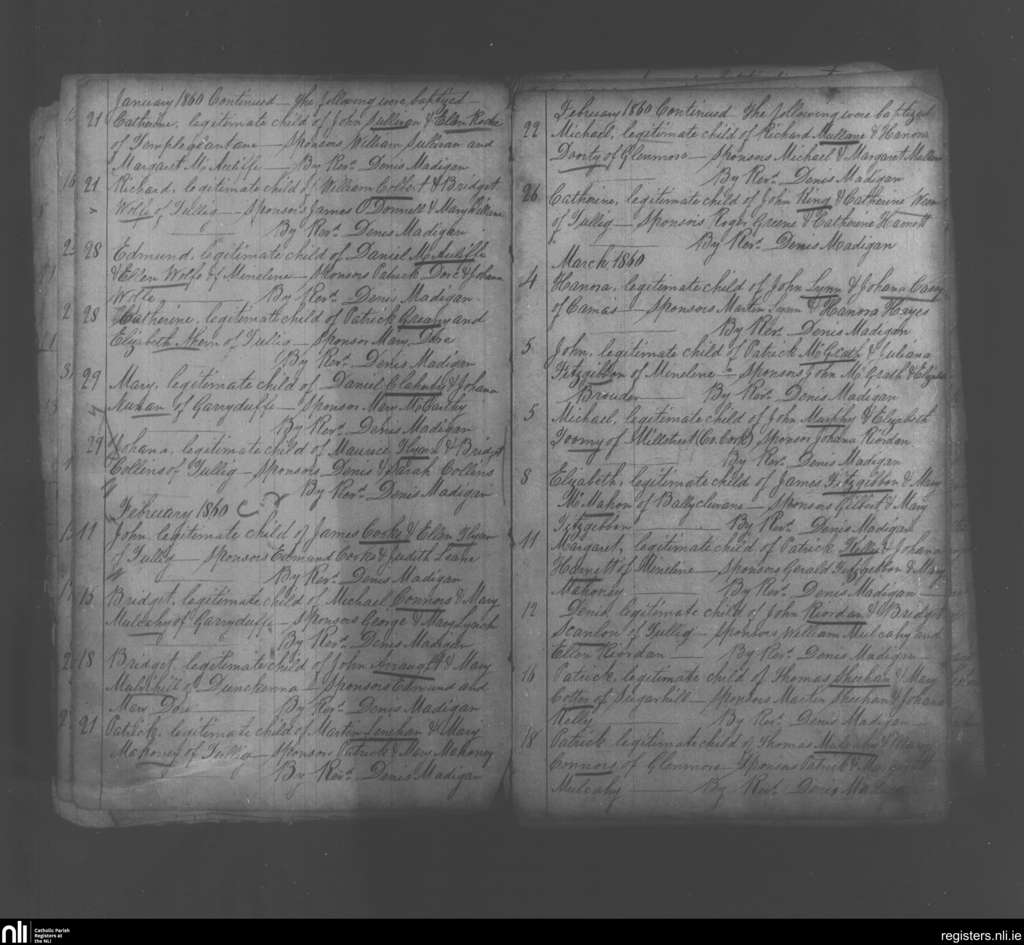 January 1860 Continued — The following were baptized
21 Catherine, legitimate child of John Sullivan & Ellen Roche
of Templegleantane — Sponsors William Sullivan and
Margaret McAuliffe — By Revd. Denis Madigan
21 Richard, legitimate child of William Colbert & Bridget
Wolfe of Tullig — Sponsors James O'Donnell & Mary
By Revd. Denis Madigan
28 Edmund, legitimate child of Daniel McAuliffe
& Ellen Wolfe of Meneline — Sponsors Patrick Dore & Johana
Wolfe — By Revd. Denis Madigan
28 Catherine, legitimate child of Patrick Greany and
Elizabeth Ahern of Tullig — Sponsor Mary Dore
By Revd. Denis Madigan
29 Mary, legitimate child of Daniel Clahnby & Johana
Nunan of Garryduffe — Sponsor Mary McCarthy
By Revd. Denis Madigan
29 Johana, legitimate child of Maurice Flynn & Bridget
Collins of Tullig — Sponsors Denis & Sarah Collins
By Revd. Denis Madigan
February 1860
11 John, legitimate child of James Corke & Ellen
of Tullig — Sponsors Edmund Corke & Judith Leane
By Revd. Denis Madigan
15 Bridget, legitimate child of Michael Connors & Mary
Mulcahy of Garryduffe — Sponsors George & Mary Lynch
By Revd. Denis Madigan
18 Bridget, legitimate child of John Arraught & Mary
Mulvihill of Dunckanna — Sponsors Edmund and
Mary Dore — By Revd. Denis Madigan
21 Patrick, legitimate child of Martin Lenehan & Mary
Mahoney of Tullig — Sponsors Patrick & Mary Mahoney
By Revd. Denis Madigan
February 1860 Continued — The following were baptized
22 Michael, legitimate child of Richard Mullane & Hanora
Danity of Glenmore — Sponsors Michael & Margaret Mullane
By Revd. Denis Madigan
26 Catherine, legitimate child of John King & Catherine
of Tullig — Sponsors Roger Greene & Catherine Harnett
By Revd. Denis Madigan
March 1860
4 Hanora, legitimate child of John Lynn & Johana Casey
of Camas — Sponsors Martin & Hanora Hayes
By Revd. Denis Madigan
5 John, legitimate child of Patrick McGrath & Juliana
Fitzgibbon of Meneline — Sponsors John McGrath & Elizabeth
Brouder — By Revd. Denis Madigan
5 Michael, legitimate child of John Murphy & Elizabeth
Toomy of Millstreet (Co. Cork) Sponsor Johana Riordan
By Revd. Denis Madigan
8 Elizabeth, legitimate child of James Fitzgibbon & Mary
McMahon of Ballyclevane — Sponsors Gilbert & Mary
Fitzgibbon — By Revd. Denis Madigan
11 Margaret, legitimate child of Patrick & Johana
Harnett of Meneline — Sponsors Gerald Fitzgibbon & Mary
Mahoney — By Revd. Denis Madigan
12 Denis, legitimate child of John Riordan & Bridget
Scanlon of Tullig — Sponsors William Mulcahy and
Ellen Riordan — By Revd. Denis Madigan
16 Patrick, legitimate child of Thomas Sheehan & Mary
Cotter of Sugarhill — Sponsors Martin Sheehan & Johana
Kelly — By Revd. Denis Madigan
18 Patrick legitimate child of Thomas Mulcahy & Mary
Connors of Glenmore — Sponsors Patrick & Margaret
Mulcahy — By Revd. Denis Madigan
nli
Catholic Parish
Registers at
the NLI
registers.nli.ie